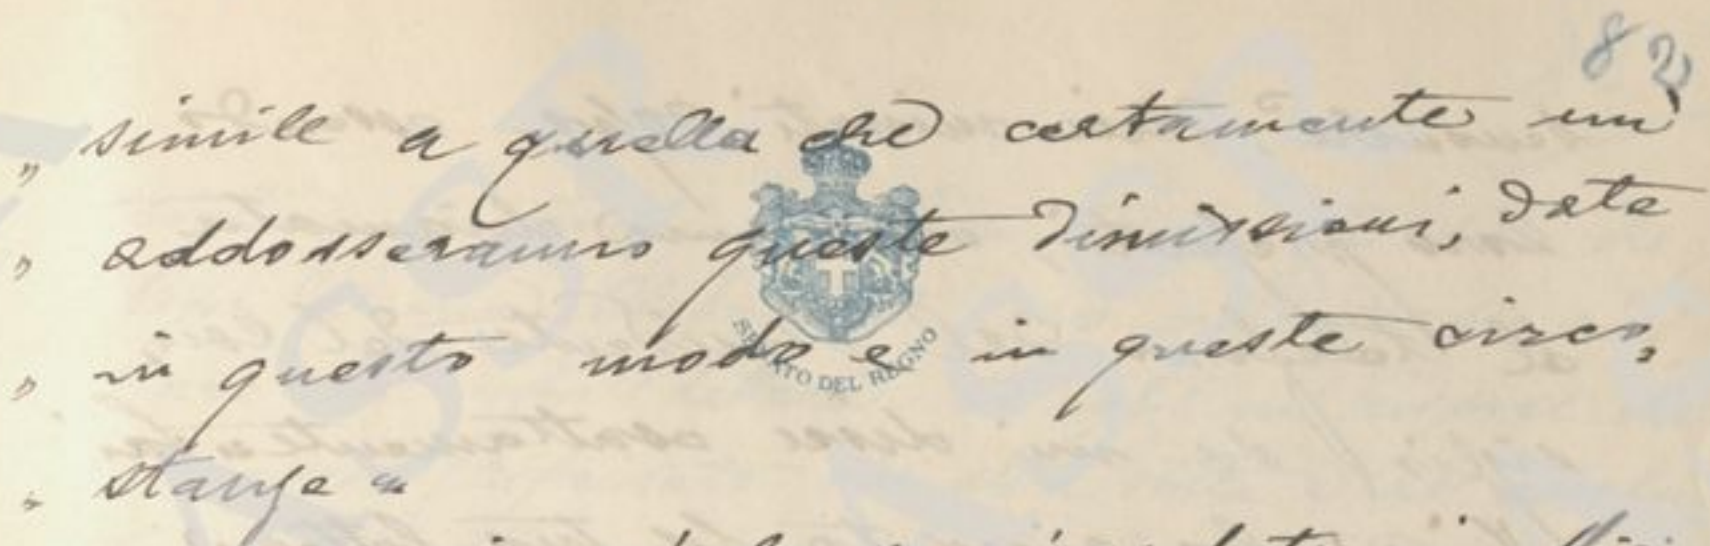 82
„ simile a quella che certamente mi
„ addosseranno queste dimissioni, date
„ in questo modo e in queste circo„
„ stanze "
SENATO DEL REGNO